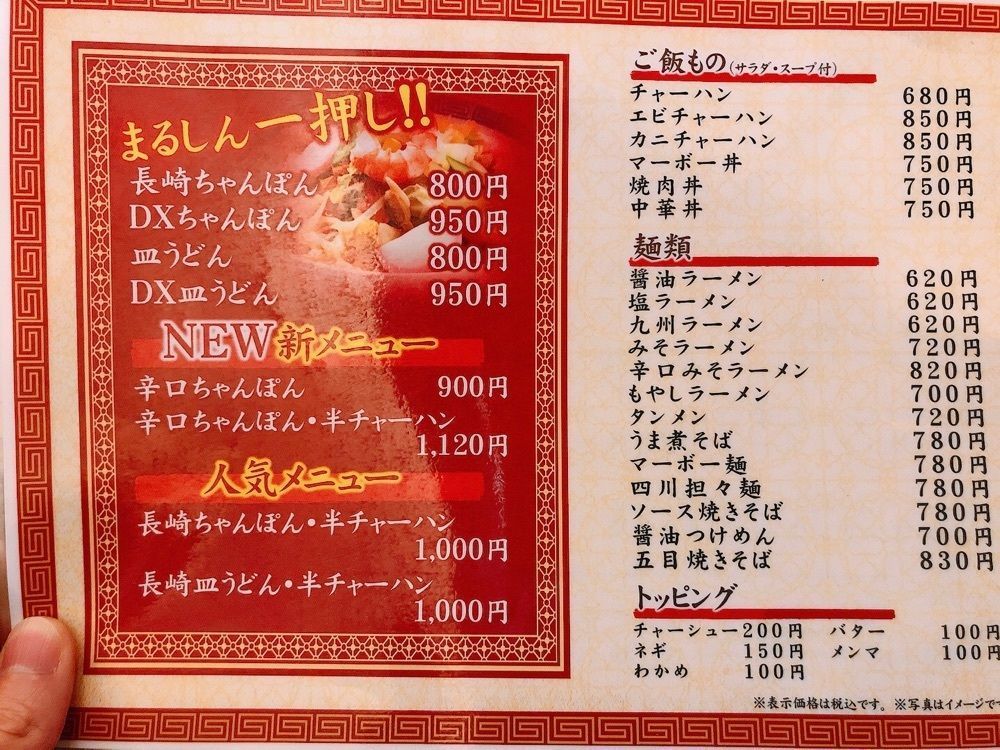 まるしん一押し!!
長崎ちゃんぽん 800円
DXちゃんぽん 950円
皿うどん 800円
DX皿うどん 950円
NEW新メニュー
辛口ちゃんぽん 900円
辛口ちゃんぽん・半チャーハン
1,120円
人気メニュー
長崎ちゃんぽん・半チャーハン
1,000円
長崎皿うどん・半チャーハン
1,000円
ご飯もの(サラダ・スープ付)
チャーハン 680円
エビチャーハン 850円
カニチャーハン 850円
マーボー丼 750円
焼肉丼 750円
中華丼 750円
麺類
醤油ラーメン 620円
塩ラーメン 620円
九州ラーメン 620円
みそラーメン 720円
辛口みそラーメン 820円
もやしラーメン 700円
タンメン 720円
うま煮そば 780円
マーボー麺 780円
四川担々麺 780円
ソース焼きそば 780円
醤油つけめん 700円
五目焼きそば 830円
トッピング
チャーシュー 200円 バター 100円
ネギ 150円 メンマ 100円
わかめ 100円
※表示価格は税込です。※写真はイメージです